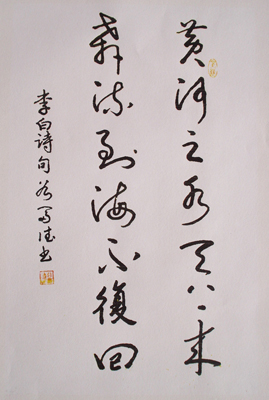 黄河之水天上来
奔流到海不復回
李白诗句书